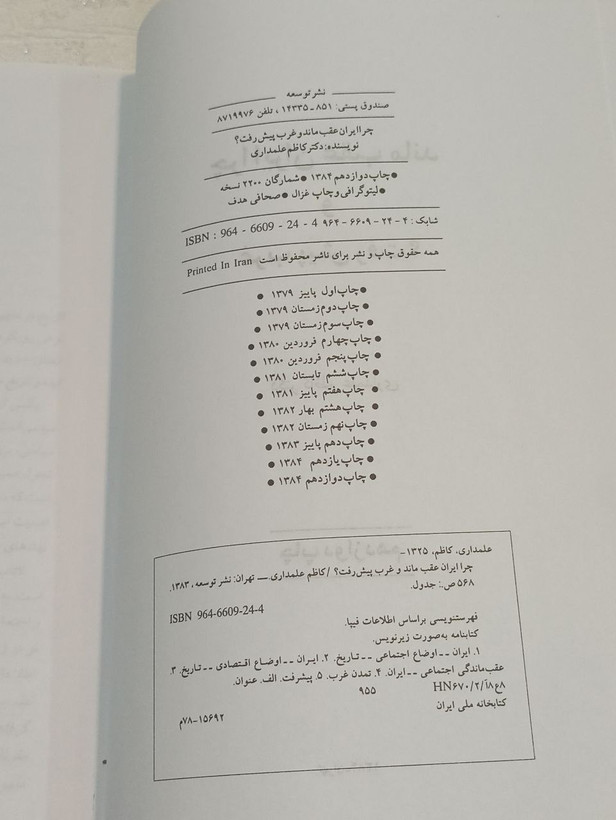 نشر توسعه
صندوق پستی: ۸۵۱ – ۱۴۳۳۵ ، تلفن ۸۷۱۹۹۷۶
چرا ایران عقب ماند و غرب پیش رفت؟
نویسنده: دکتر کاظم علمداری
● چاپ دوازدهم ۱۳۸۴ ● شمارگان ۲۲۰۰ نسخه
● لیتوگرافی و چاپ غزال ● صحافی هدف
شابک : ۴ – ۲۴ – ۶۶۰۹ – ۹۶۴ ISBN : 964 - 6609 - 24 - 4
همه حقوق چاپ و نشر برای ناشر محفوظ است Printed In Iran
● چاپ اول پاییز ۱۳۷۹ ●
● چاپ دوم زمستان ۱۳۷۹ ●
● چاپ سوم زمستان ۱۳۷۹ ●
● چاپ چهارم فروردین ۱۳۸۰ ●
● چاپ پنجم فروردین ۱۳۸۰ ●
● چاپ ششم تابستان ۱۳۸۱ ●
● چاپ هفتم پاییز ۱۳۸۱ ●
● چاپ هشتم بهار ۱۳۸۲ ●
● چاپ نهم زمستان ۱۳۸۲ ●
● چاپ دهم پاییز ۱۳۸۳ ●
● چاپ یازدهم ۱۳۸۴ ●
● چاپ دوازدهم ۱۳۸۴ ●
علمداری، کاظم، ۱۳۲۵ –
چرا ایران عقب ماند و غرب پیش رفت؟ / کاظم علمداری. — تهران: نشر توسعه، ۱۳۸۳.
۵۶۸ ص.: جدول.
ISBN 964-6609-24-4
فهرستنویسی براساس اطلاعات فیپا.
کتابنامه به‌صورت زیرنویس.
۱. ایران -- اوضاع اجتماعی -- تاریخ. ۲. ایران -- اوضاع اقتصادی -- تاریخ. ۳.
عقب‌ماندگی اجتماعی -- ایران. ۴. تمدن غرب. ۵. پیشرفت. الف. عنوان.
۹۵۵ HN۶۷۰/۲/آ۸ع۸
کتابخانه ملی ایران
۷۸-۱۵۶۹۲م